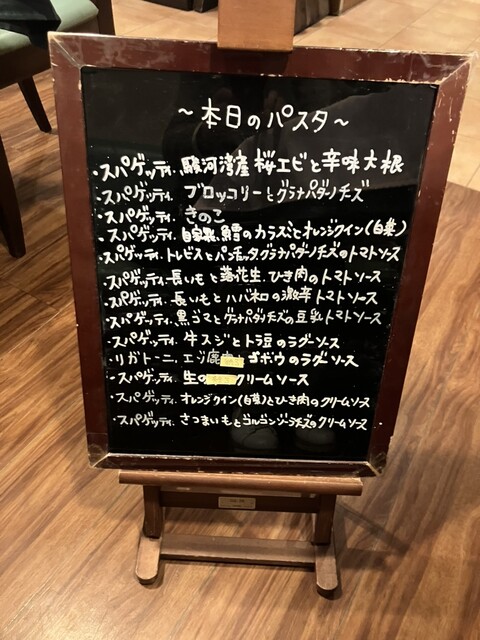 ～本日のパスタ～
・スパゲッティ. 駿河湾産 桜エビと辛味大根
・スパゲッティ. ブロッコリーとグラナパダーノチーズ
・スパゲッティ. きのこ
・スパゲッティ. 自家製 鱈のカラスミとオレンジクイン(白菜)
・スパゲッティ. トレビスとパンチェッタ、グラナパダーノチーズのトマトソース
・スパゲッティ. 長いもと落花生、ひき肉のトマトソース
・スパゲッティ. 長いもとハバネロの激辛トマトソース
・スパゲッティ. 黒ゴマとグラナパダーノチーズの豆乳トマトソース
・スパゲッティ. 牛スジとトラ豆のラグーソース
・リガトーニ. エゾ鹿 ゴボウのラグーソース
・スパゲッティ. 生の クリームソース
・スパゲッティ. オレンジクイン(白菜)とひき肉のクリームソース
・スパゲッティ. さつまいもとゴルゴンゾーラチーズのクリームソース